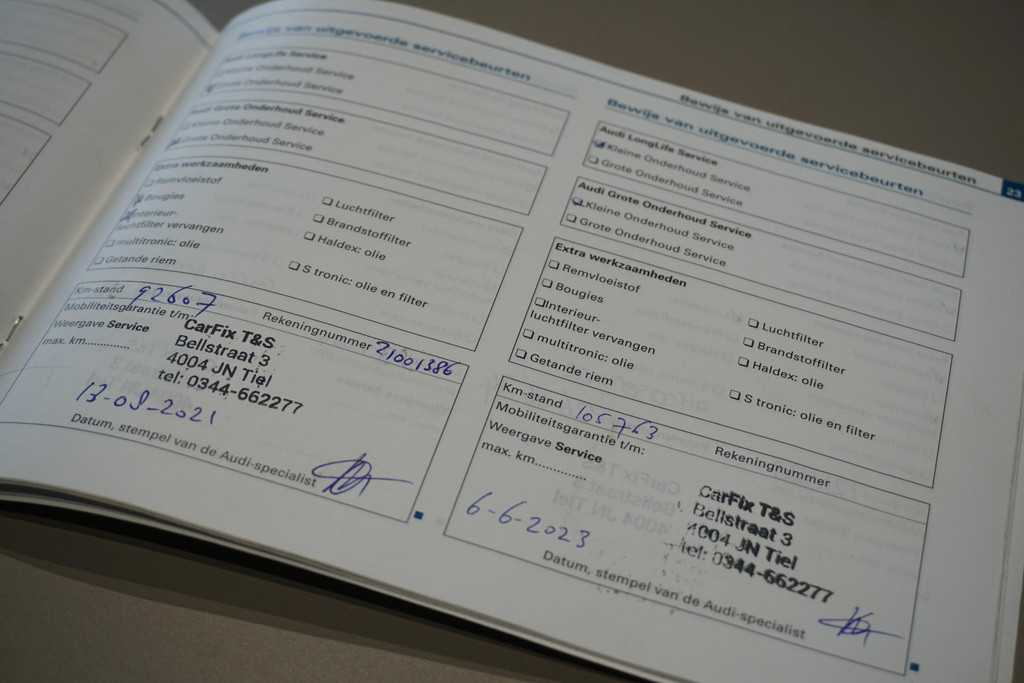 Bewijs van uitgevoerde servicebeurten
Audi LongLife Service
Kleine Onderhoud Service
Grote Onderhoud Service
Audi Grote Onderhoud Service
Kleine Onderhoud Service
Grote Onderhoud Service
Extra werkzaamheden
Remvloeistof
Bougies
Interieur-
luchtfilter vervangen
multitronic: olie
Getande riem
Luchtfilter
Brandstoffilter
Haldex: olie
S tronic: olie en filter
Km-stand 92607
Mobiliteitsgarantie t/m:
Rekeningnummer 21001386
Weergave Service
max. km..............
CarFix T&S
Bellstraat 3
4004 JN Tiel
tel: 0344-662277
13-09-2021
Datum, stempel van de Audi-specialist
Bewijs van uitgevoerde servicebeurten
23
Bewijs van uitgevoerde servicebeurten
Audi LongLife Service
Kleine Onderhoud Service
Grote Onderhoud Service
Audi Grote Onderhoud Service
Kleine Onderhoud Service
Grote Onderhoud Service
Extra werkzaamheden
Remvloeistof
Bougies
Interieur-
luchtfilter vervangen
multitronic: olie
Getande riem
Luchtfilter
Brandstoffilter
Haldex: olie
S tronic: olie en filter
Km-stand 105763
Mobiliteitsgarantie t/m:
Rekeningnummer
Weergave Service
max. km..............
CarFix T&S
Bellstraat 3
4004 JN Tiel
tel: 0344-662277
6-6-2023
Datum, stempel van de Audi-specialist